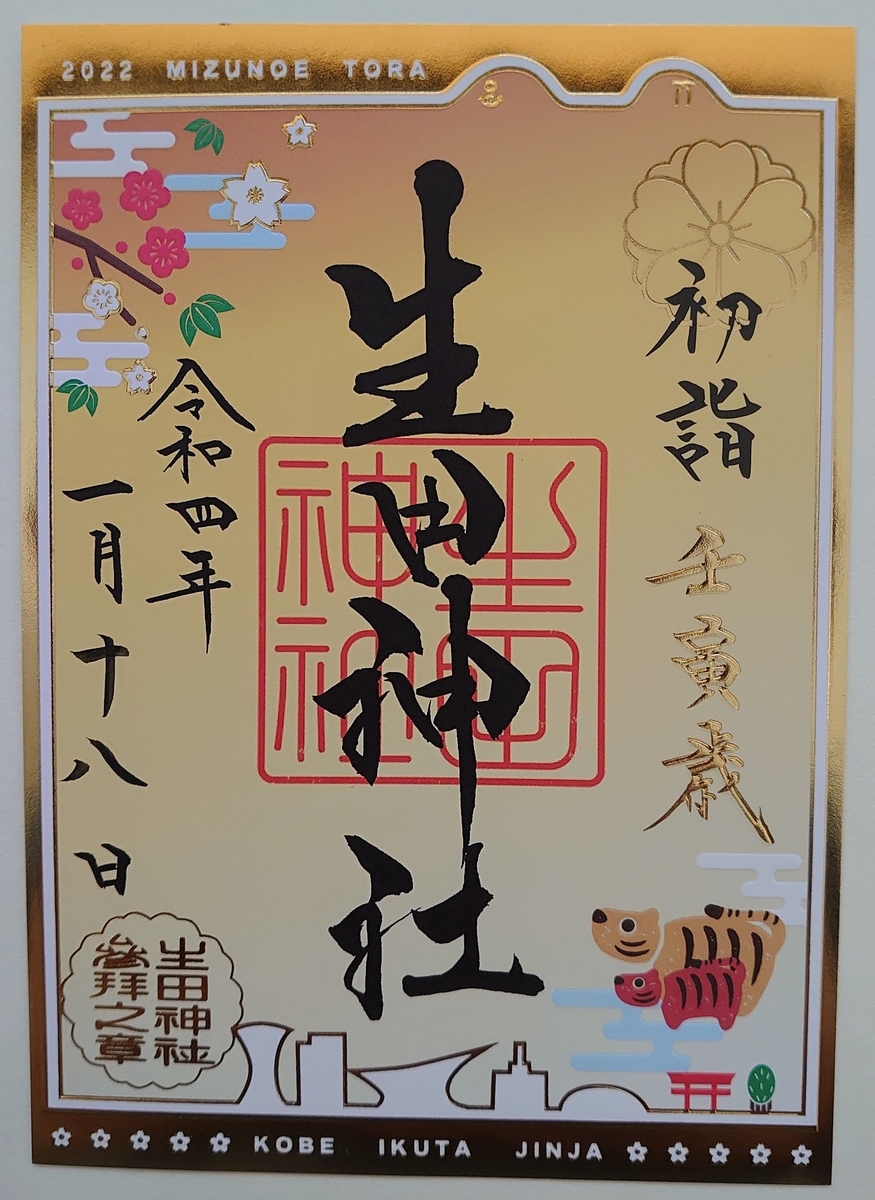 2022 MIZUNOE TORA
初詣 壬寅歳
生田神社
生田
神社
令和四年
一月十八日
生田神社
参拝之章
KOBE IKUTA JINJA